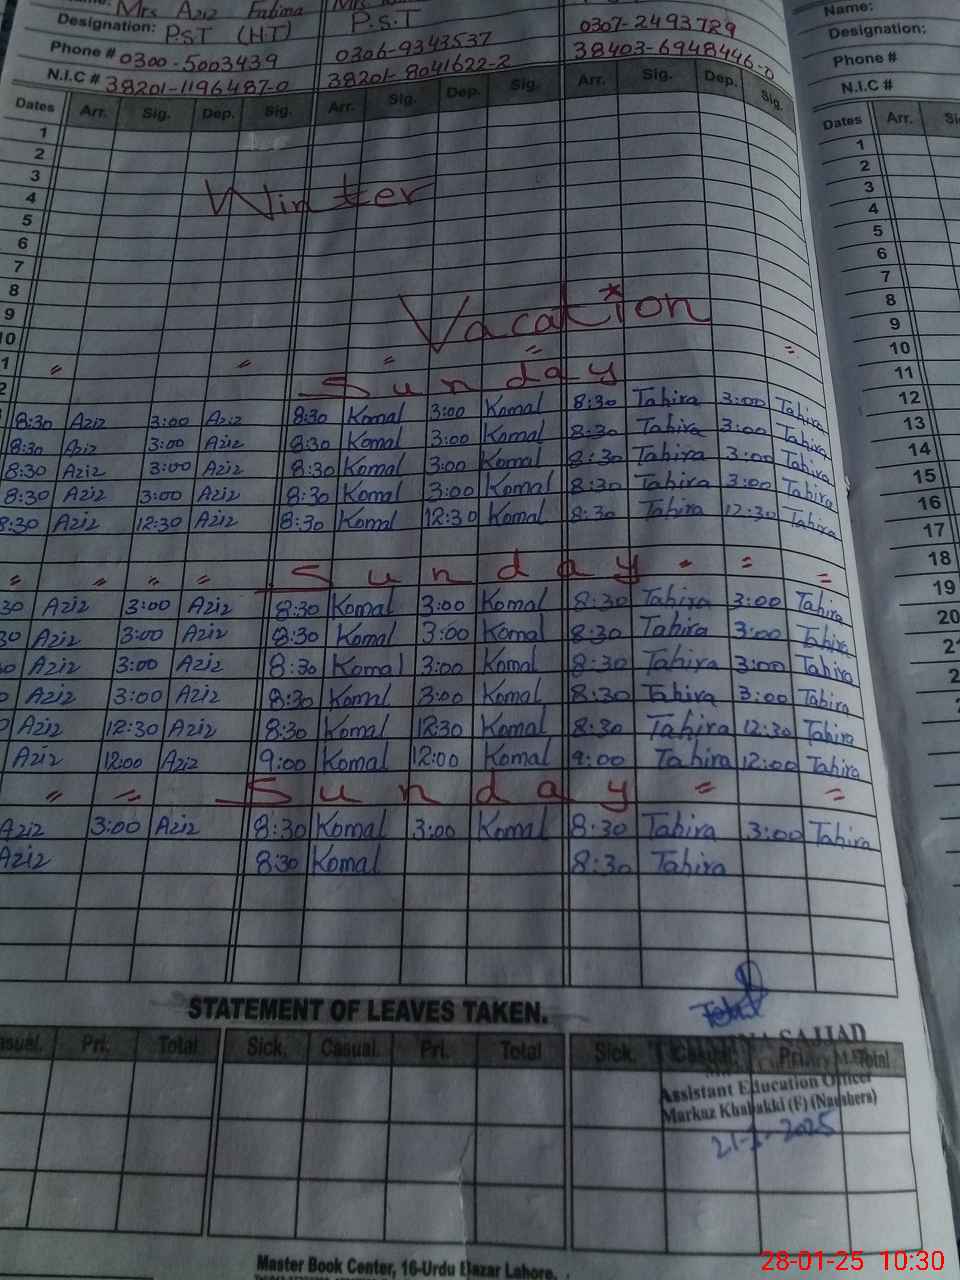 Mrs Aziz Fatima
Designation: P.S.T (HT) P.S.T
Phone # 0300-5003439 0306-9343537 0307-2493789
N.I.C # 38201-1196487-0 38201-8041622-2 38403-6948446-0
Dates Arr. Sig. Dep. Sig. Arr. Sig. Dep. Sig. Arr. Sig. Dep. Sig.
1
2
3
4
Winter
5
6
7
8
9
Vacation
10
1 " " " " "
2 Sunday
8:30 Aziz 3:00 Aziz 8:30 Komal 3:00 Komal 8:30 Tahira 3:00 Tahira
8:30 Aziz 3:00 Aziz 8:30 Komal 3:00 Komal 8:30 Tahira 3:00 Tahira
8:30 Aziz 3:00 Aziz 8:30 Komal 3:00 Komal 8:30 Tahira 3:00 Tahira
8:30 Aziz 3:00 Aziz 8:30 Komal 3:00 Komal 8:30 Tahira 3:00 Tahira
8:30 Aziz 12:30 Aziz 8:30 Komal 12:30 Komal 8:30 Tahira 12:30 Tahira
" " " " Sunday " " "
30 Aziz 3:00 Aziz 8:30 Komal 3:00 Komal 8:30 Tahira 3:00 Tahira
30 Aziz 3:00 Aziz 8:30 Komal 3:00 Komal 8:30 Tahira 3:00 Tahira
0 Aziz 3:00 Aziz 8:30 Komal 3:00 Komal 8:30 Tahira 3:00 Tahira
0 Aziz 3:00 Aziz 8:30 Komal 3:00 Komal 8:30 Tahira 3:00 Tahira
0 Aziz 12:30 Aziz 8:30 Komal 12:30 Komal 8:30 Tahira 12:30 Tahira
Aziz 12:00 Aziz 9:00 Komal 12:00 Komal 9:00 Tahira 12:00 Tahira
" " Sunday " "
Aziz 3:00 Aziz 8:30 Komal 3:00 Komal 8:30 Tahira 3:00 Tahira
Aziz 8:30 Komal 8:30 Tahira
STATEMENT OF LEAVES TAKEN.
asual. Pri. Total Sick. Casual. Pri. Total Sick. Casual. Pri. Total
SAJJAD
Assistant Education Officer
Markaz Khabakki (F) (Naushera)
21-1-2025
Master Book Center, 16-Urdu Bazar Lahore.
Name:
Designation:
Phone #
N.I.C #
Dates Arr. Si
1
2
3
4
5
6
7
8
9
10
11
12
13
14
15
16
17
18
19
20
28-01-25 10:30